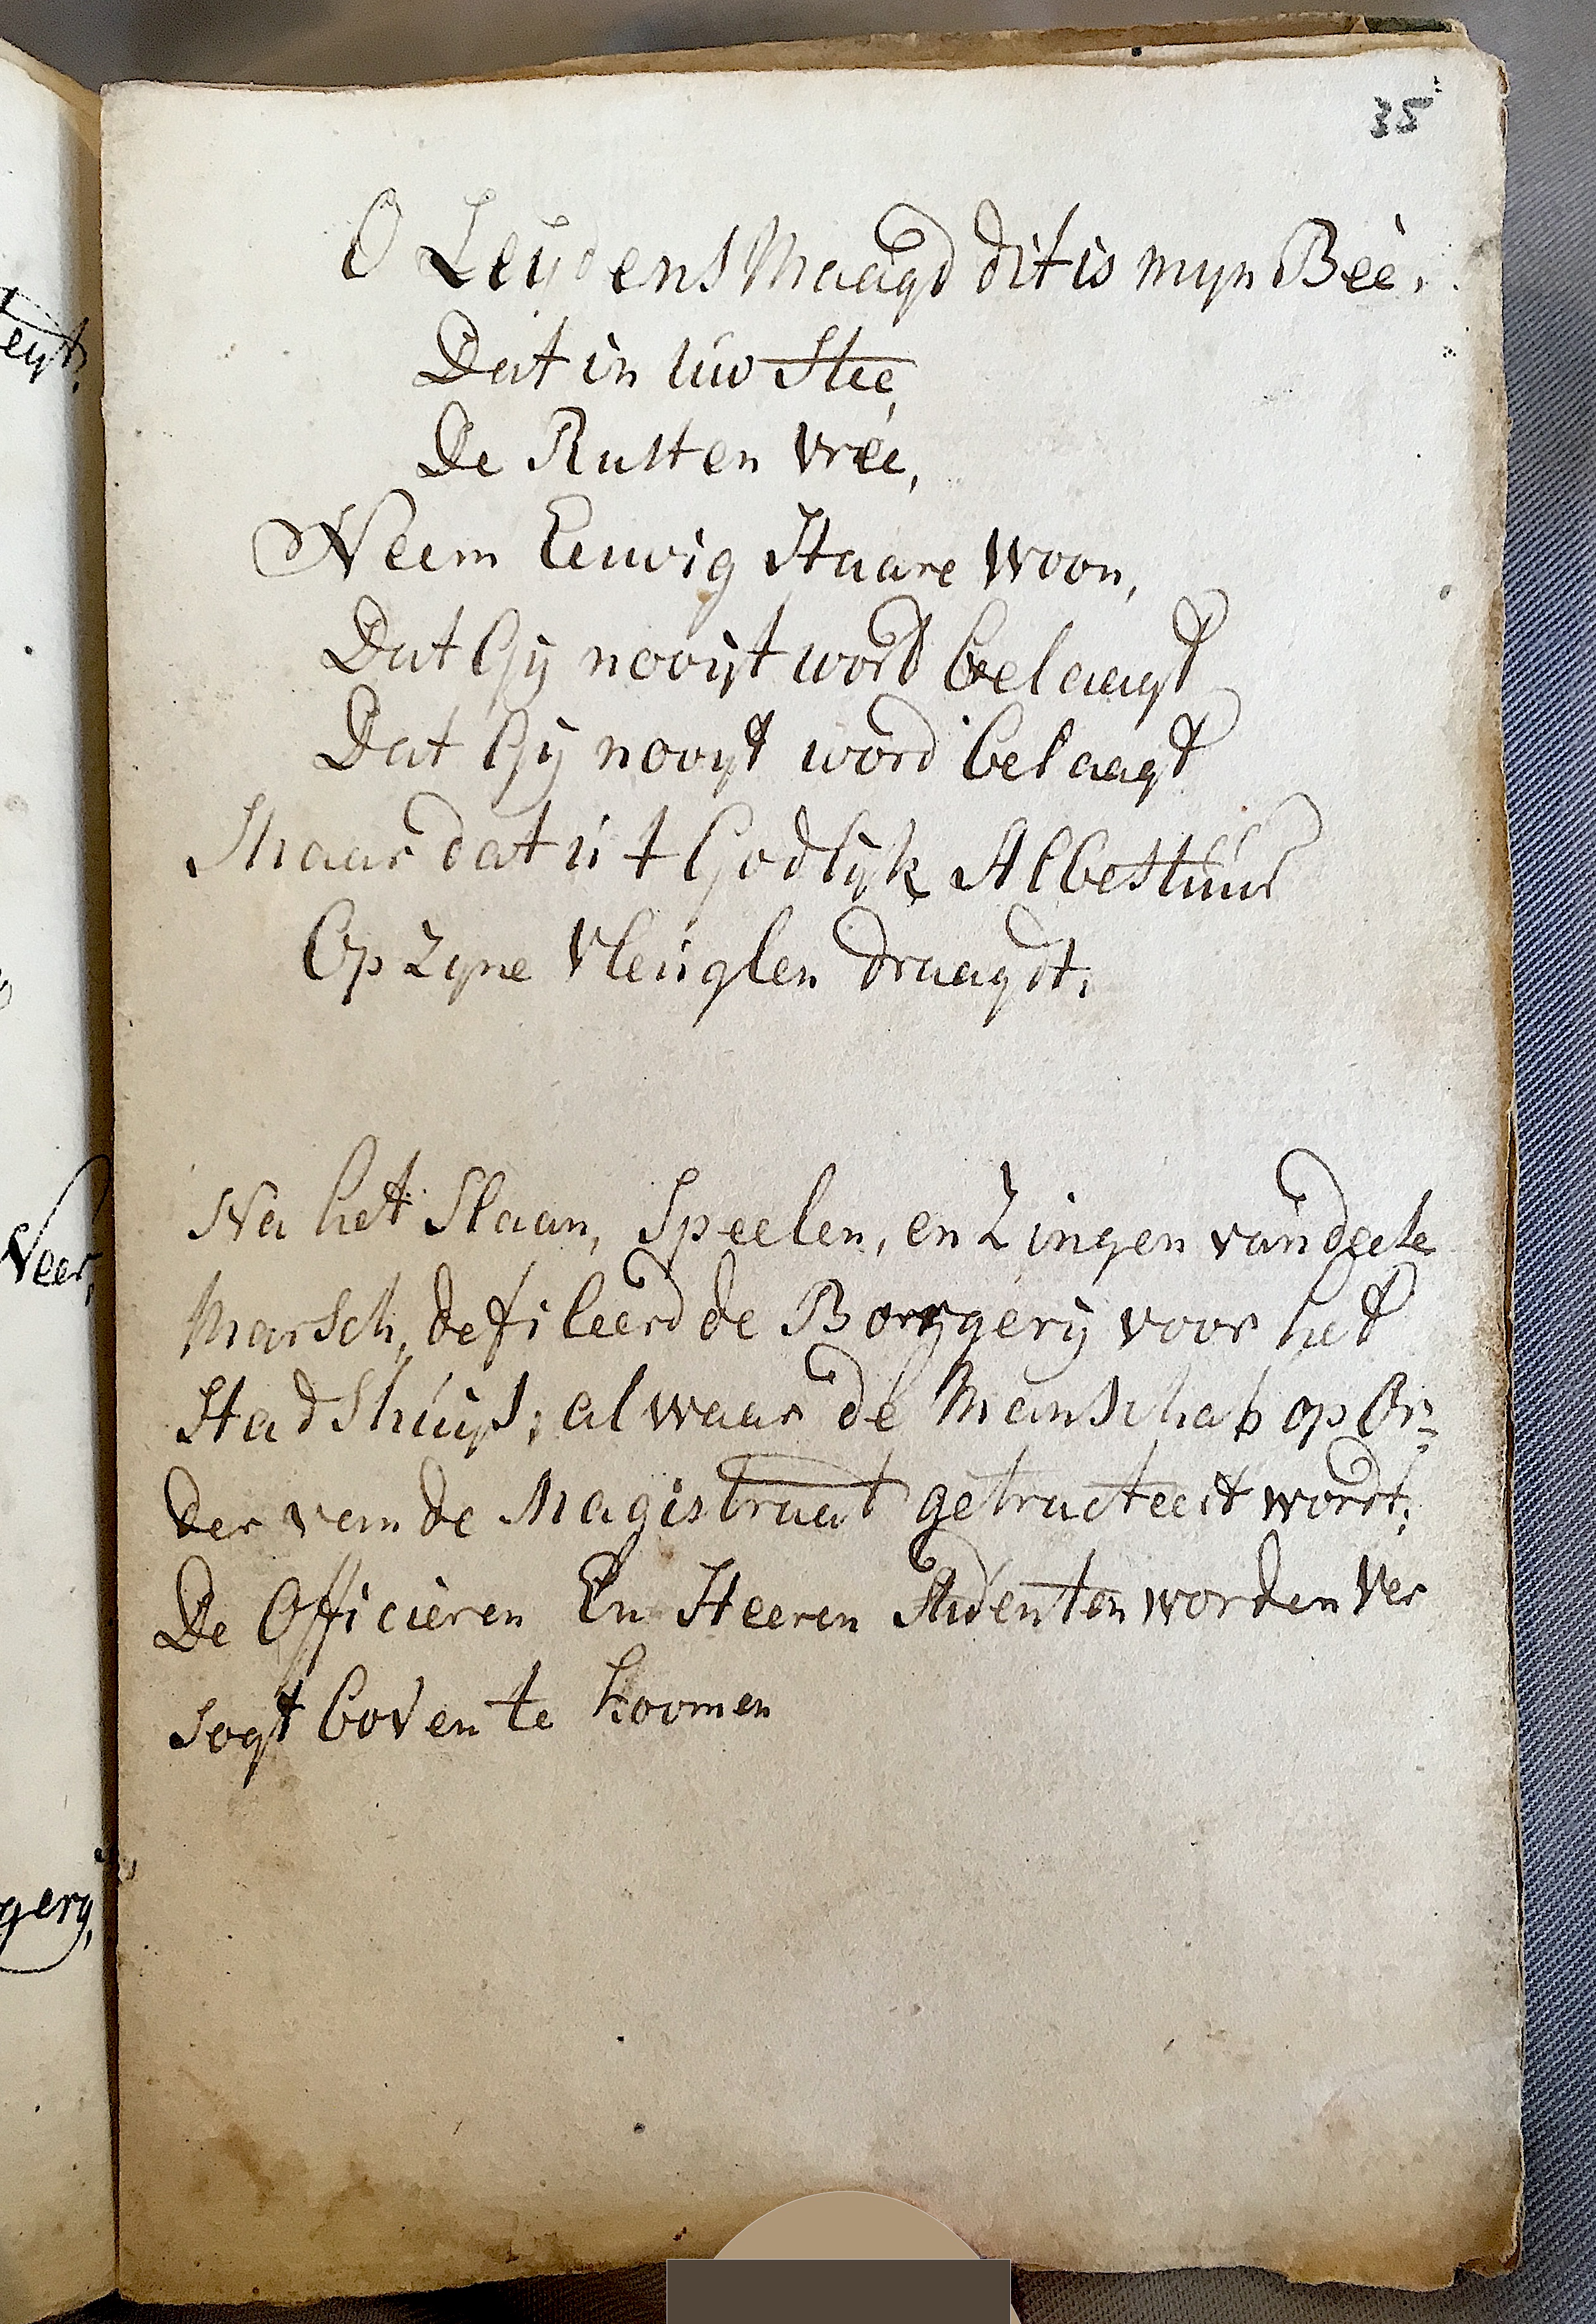 35
O Leydens Maagd dit is myn Beê,
Dat in úw Stee,
De Rust en vrée,
Neem Eeuwig Haare Woon,
Dat Gij nooijt word belaagt
Dat Gij nooyt word belaagt
Maar dat ú 't Godlijk Albestúúr
Op Zyne Vleúglen draagdt.
Na het Slaan, Speelen, en Zingen van deese
Marsch, defileerd de Borgerij voor het
Stadshúijs, alwaar de Manschap op Or=
der van de Magistraat getracteert wordt;
De Officieren En Heeren Studenten worden Ver
sogt boven te koomen
eyt,
Neer,
gery,